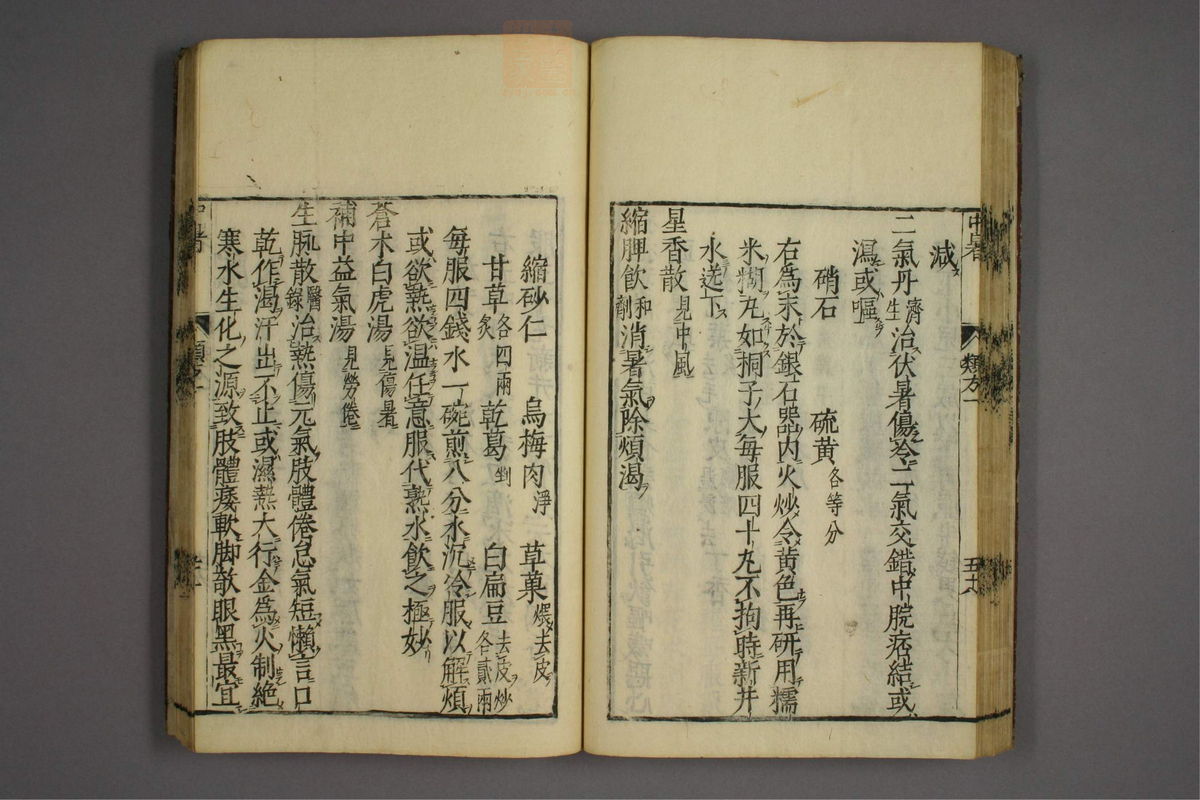 中暑 類方一 五十八
減
二氣丹濟生治伏暑傷冷二氣交錯中脘痞結或
瀉或嘔
硝石 硫黃各等分
右為末於銀石器内火炒令黃色再研用糯
米糊丸如桐子大每服四十丸不拘時新井
水送下
星香散見中風
縮脾飲和劑消暑氣除煩渴
縮砂仁 烏梅肉淨 草菓煨去皮
甘草炙各四兩 乾葛剉 白扁豆去皮炒各貳兩
每服四錢水一碗煎八分水沉冷服以解煩
或欲熱欲温任意服代熟水飲之極妙
蒼朮白虎湯見傷暑
補中益氣湯見勞倦
生脉散醫錄治熱傷元氣肢體倦怠氣短懶言口
乾作渴汗出不止或濕熱大行金為火制絶
寒水生化之源致肢體痿軟脚欹眼黑最宜